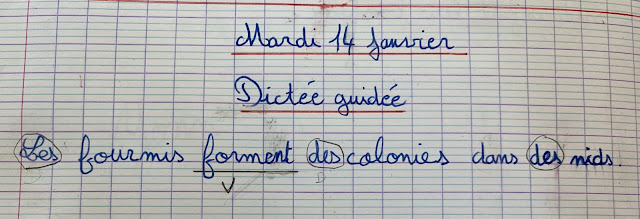 Mardi 14 janvier
Dictée guidée
Les fourmis forment des colonies dans des nids.
V